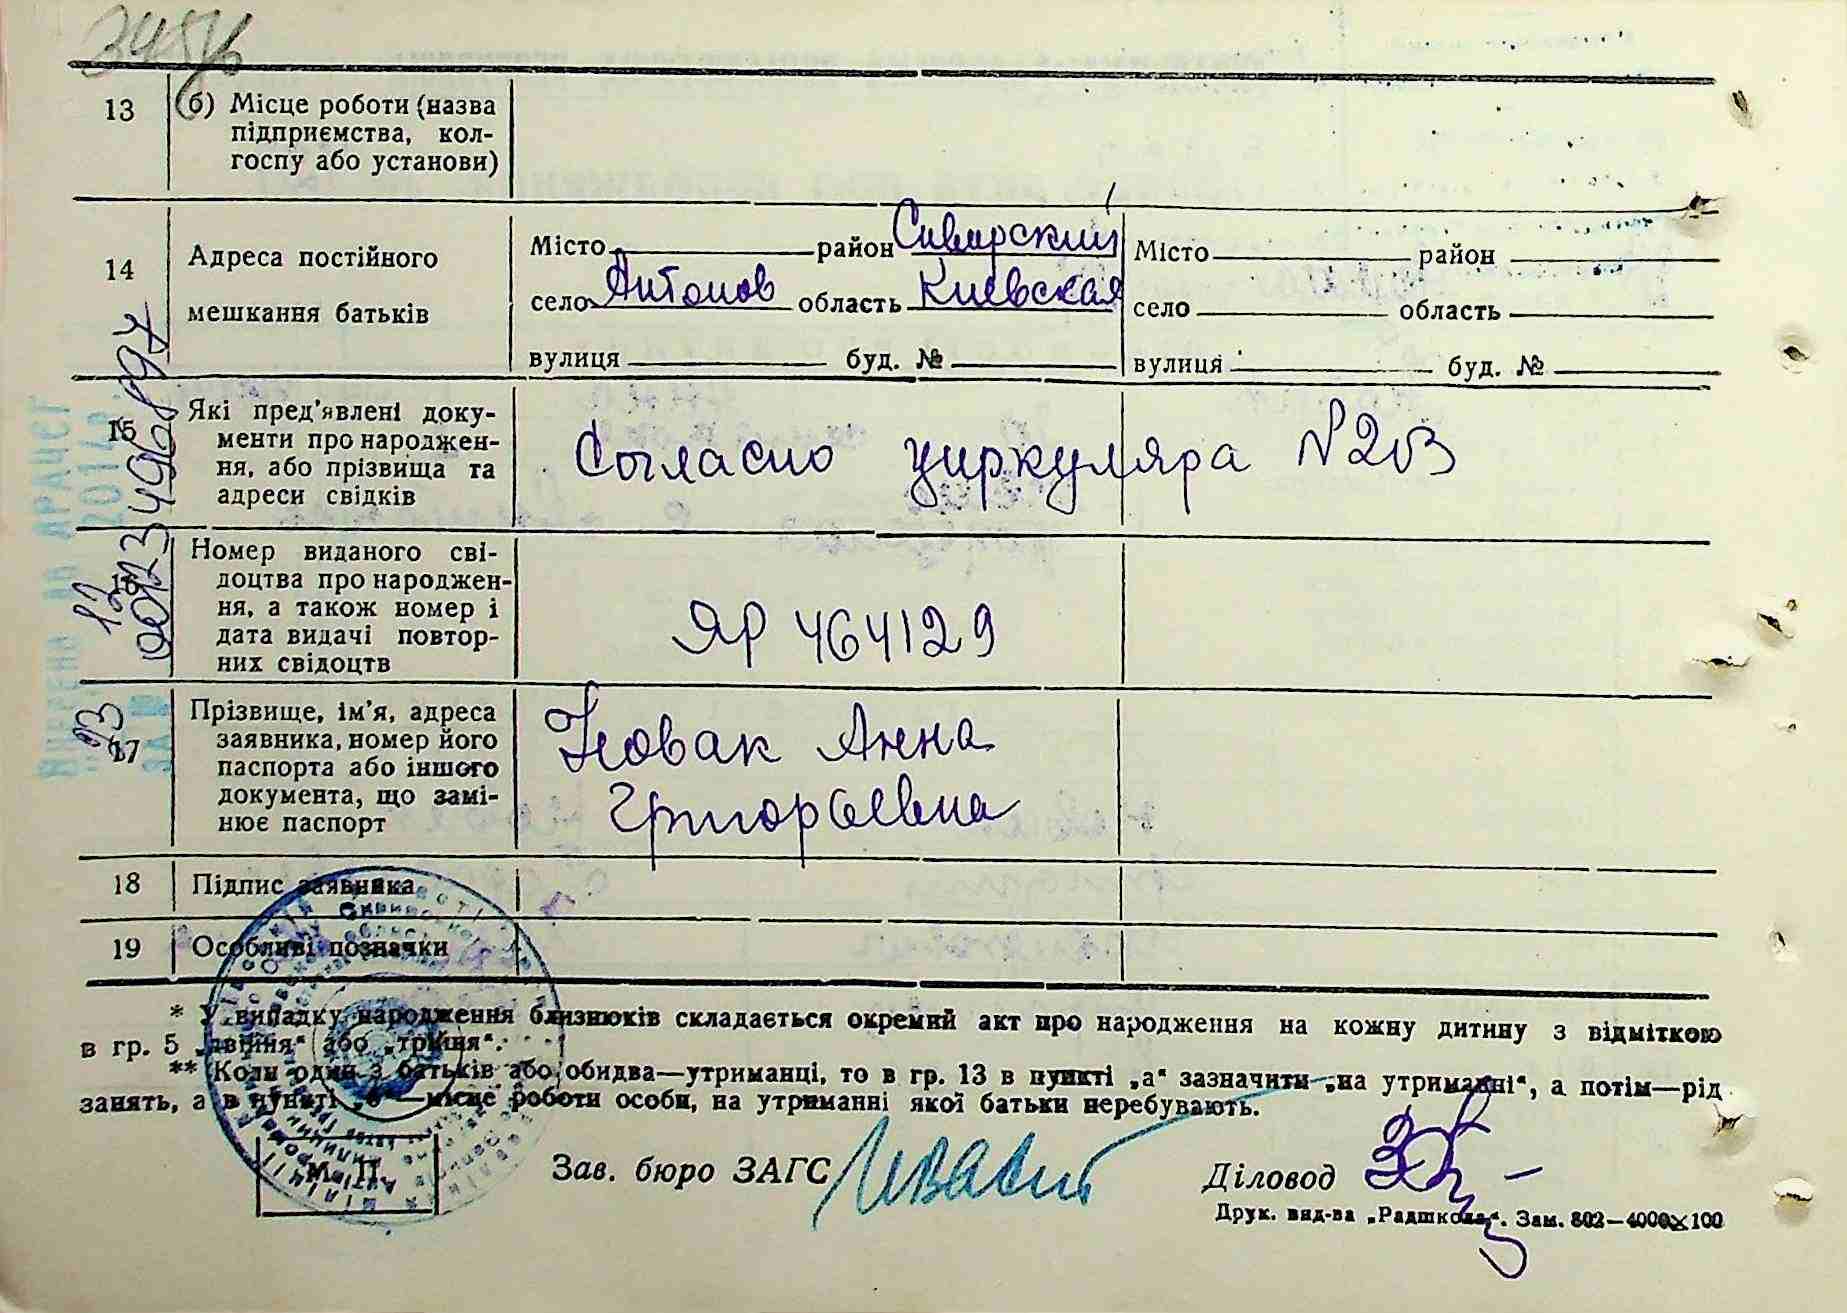 13
(б) Місце роботи (назва
підприємства, кол-
госпу або установи)
14
Адреса постійного
мешкання батьків
Місто район
село Антонов область Киевская
вулиця буд. №
Місто район
село область
вулиця буд. №
15
Які пред'явлені доку-
менти про народжен-
ня, або прізвища та
адреси свідків
Согласно циркуляра №203
Номер виданого сві-
доцтва про народжен-
ня, а також номер і
дата видачі повтор-
них свідоцтв
ЯР 464129
17
Прізвище, ім'я, адреса
заявника, номер його
паспорта або іншого
документа, що замі-
нює паспорт
Новак Анна
Григорьевна
18
Підпис заявника
19
Особливі позначки
* У випадку народження близнюків складається окремий акт про народження на кожну дитину з відміткою
в гр. 5 „двійня“ або „трійня“.
** Коли один з батьків або обидва—утриманці, то в гр. 13 в пункті „а“ зазначити „на утриманні“, а потім—рід
занять, а в пункті „б“—місце роботи особи, на утриманні якої батьки перебувають.
М. П.
Зав. бюро ЗАГС
Діловод
Друк. вид-ва „Радшкола“. Зам. 802—4000×100